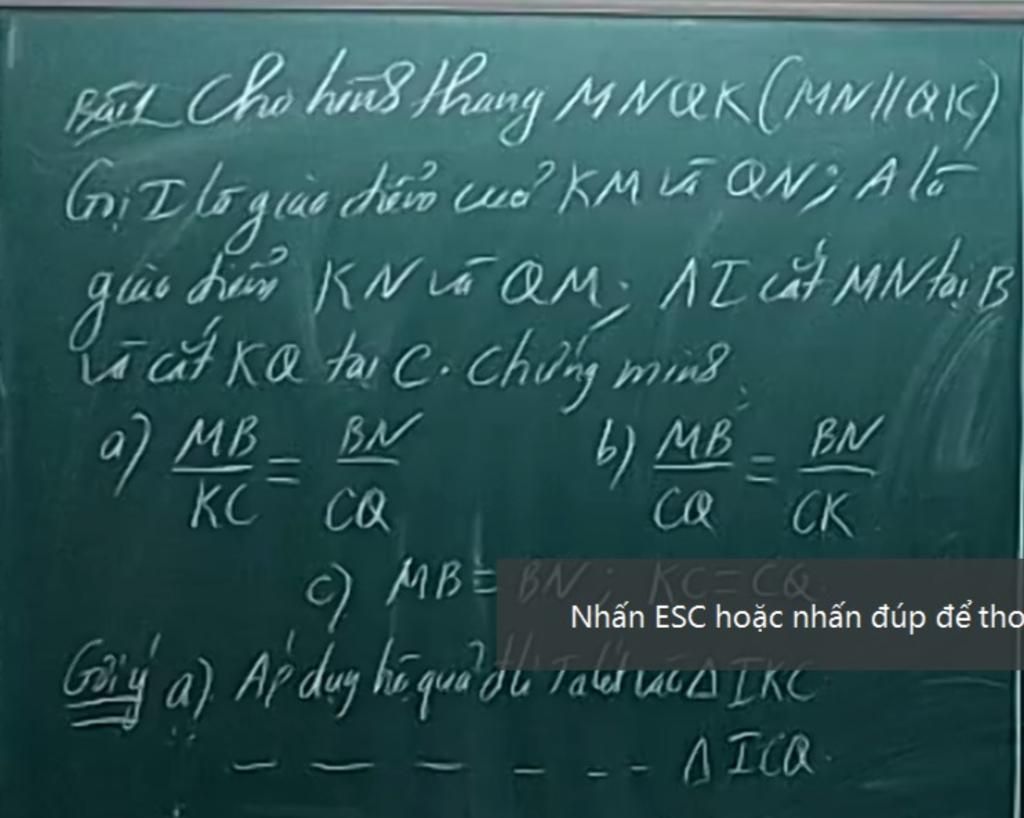 Bài 1 Cho hình thang MNQK (MN//QK)
Gọi I là giao điểm của KM và QN; A là
giao điểm KN và QM; AI cắt MN tại B
và cắt KQ tại C. Chứng minh:
a) MB/KC = BN/CQ b) MB/CQ = BN/CK
c) MB = BN; KC = CQ
Nhấn ESC hoặc nhấn đúp để tho
Gợi ý a). Áp dụng hệ quả đl Talet vào Δ IKC
— — — – - - - Δ ICQ.